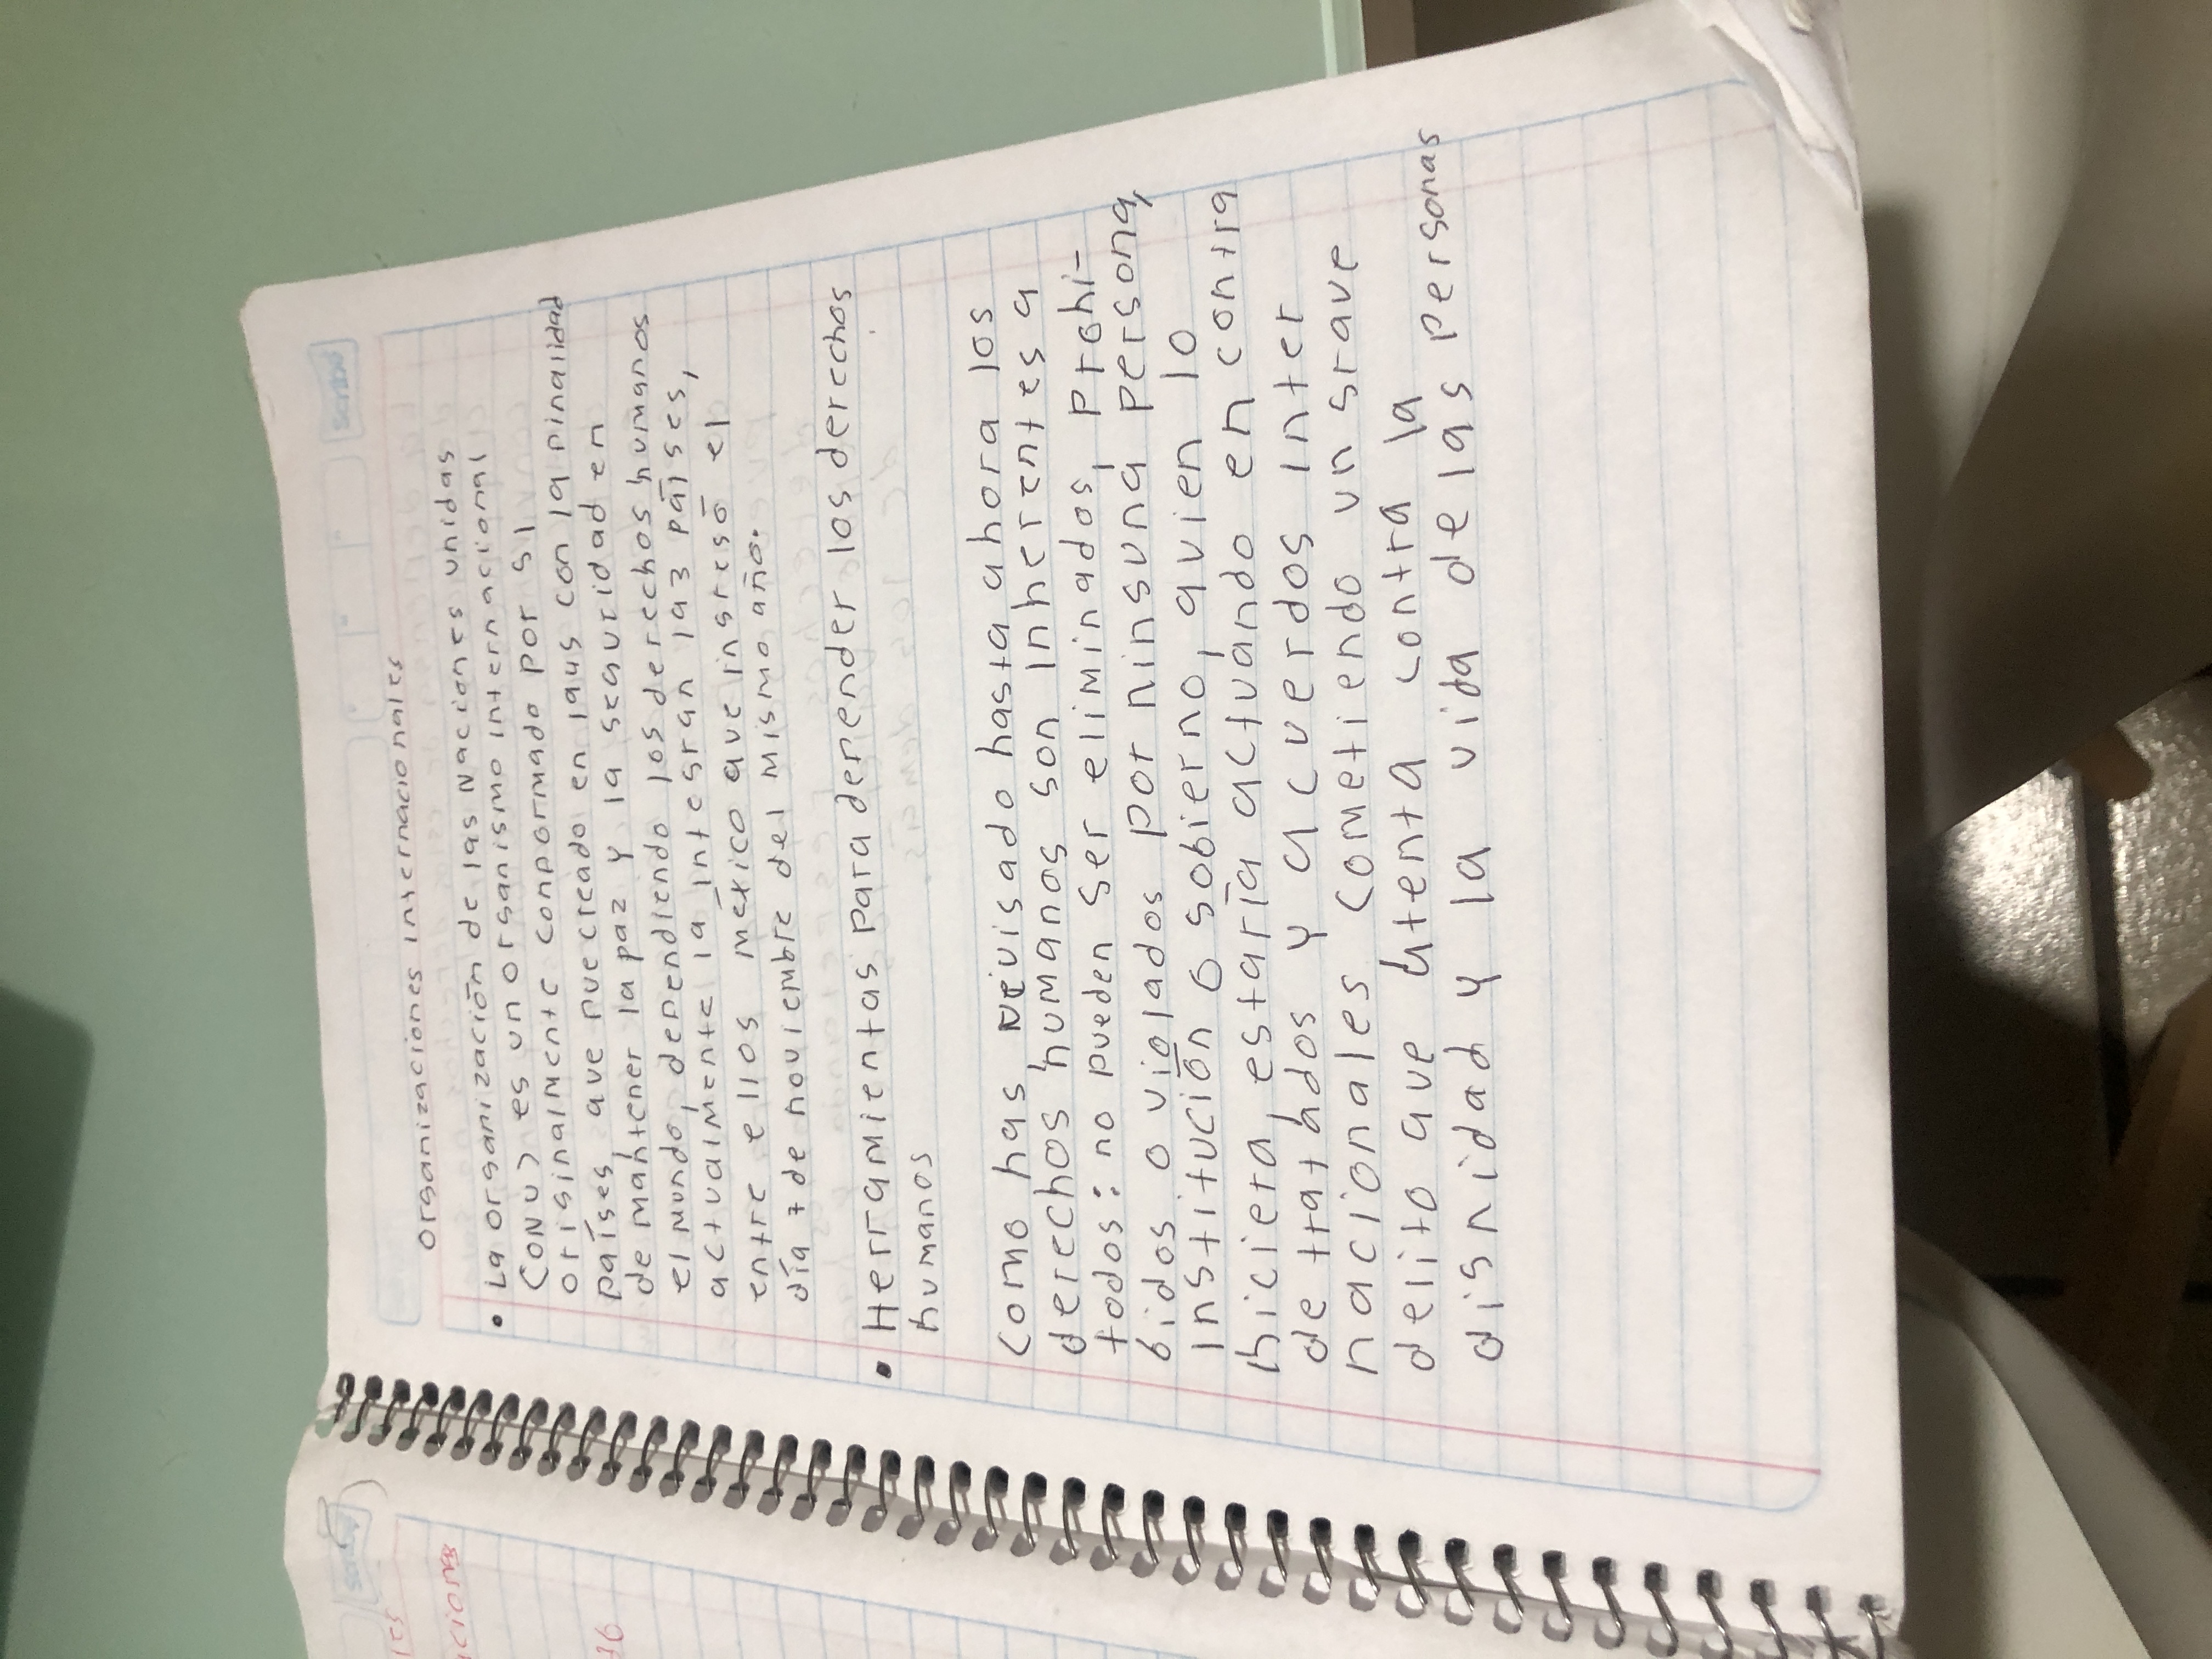 Organizaciones internacionales
• La organización de las Naciones unidas
(ONU) es un organismo internacional
originalmente conformado por 51
países que fue creado en 1945 con la finalidad
de mantener la paz y la seguridad en
el mundo, defendiendo los derechos humanos
actualmente la integran 193 países,
entre ellos México que ingresó el
día 7 de noviembre del mismo año.
• Herramientas para defender los derechos
humanos
como has revisado hasta ahora los
derechos humanos son inherentes a
todos: no pueden ser eliminados, prohi-
bidos o violados por ninguna persona,
institución o gobierno, quien lo
hiciera, estaría actuando en contra
de tratados y acuerdos inter
nacionales cometiendo un grave
delito que atenta contra la
dignidad y la vida de las personas
scribe